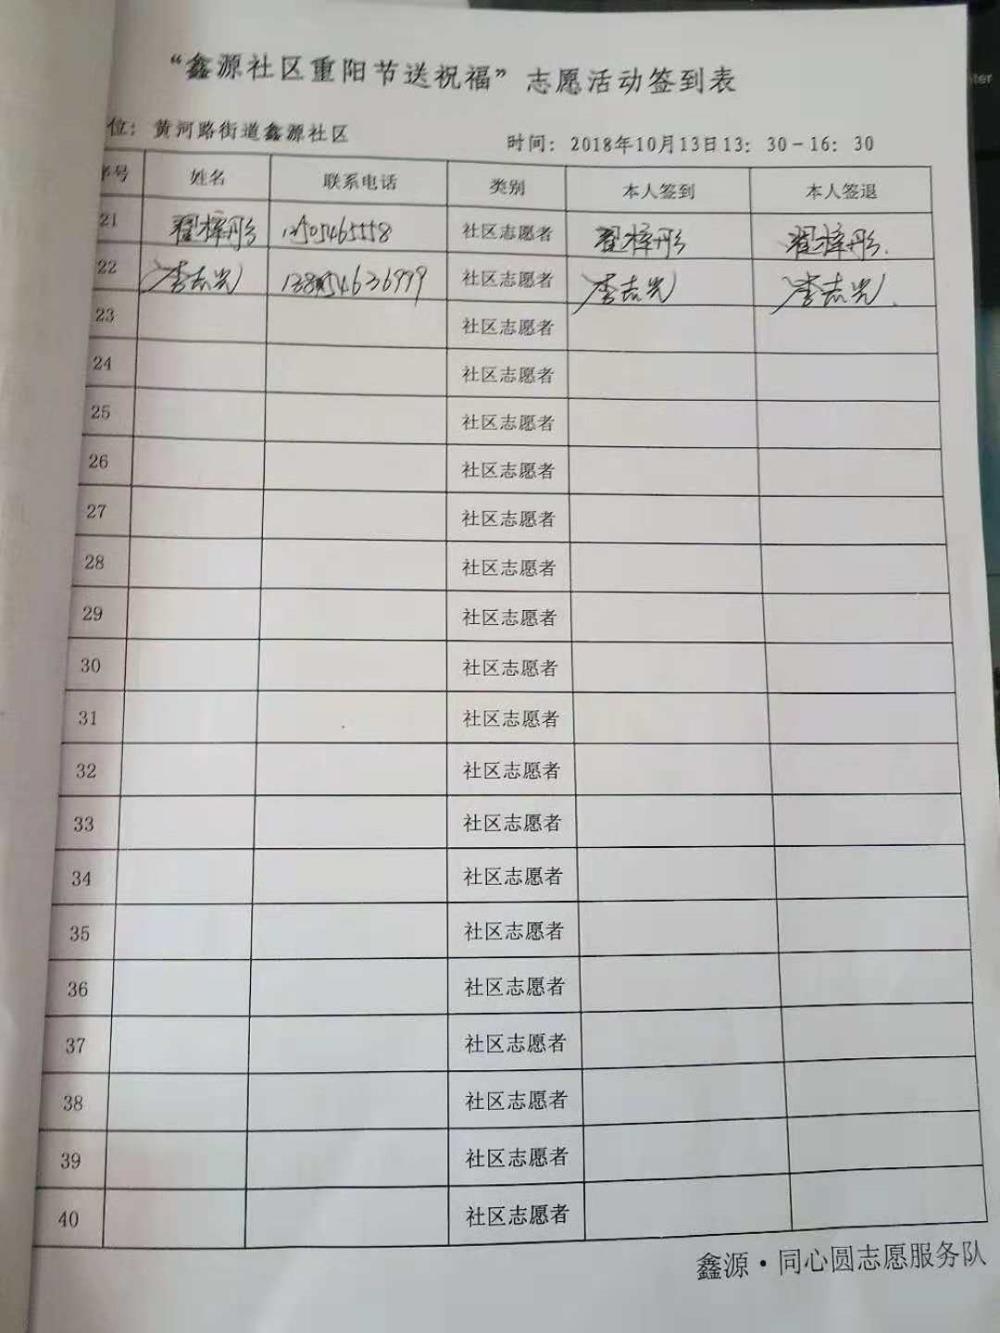 “鑫源社区重阳节送祝福”志愿活动签到表
位：黄河路街道鑫源社区 时间：2018年10月13日13：30－16：30
序号 姓名 联系电话 类别 本人签到 本人签退
21 翟梓彤 社区志愿者 翟梓彤 翟梓彤.
22 李志光 社区志愿者 李志光 李志光.
23 社区志愿者
24 社区志愿者
25 社区志愿者
26 社区志愿者
27 社区志愿者
28 社区志愿者
29 社区志愿者
30 社区志愿者
31 社区志愿者
32 社区志愿者
33 社区志愿者
34 社区志愿者
35 社区志愿者
36 社区志愿者
37 社区志愿者
38 社区志愿者
39 社区志愿者
40 社区志愿者
鑫源·同心圆志愿服务队